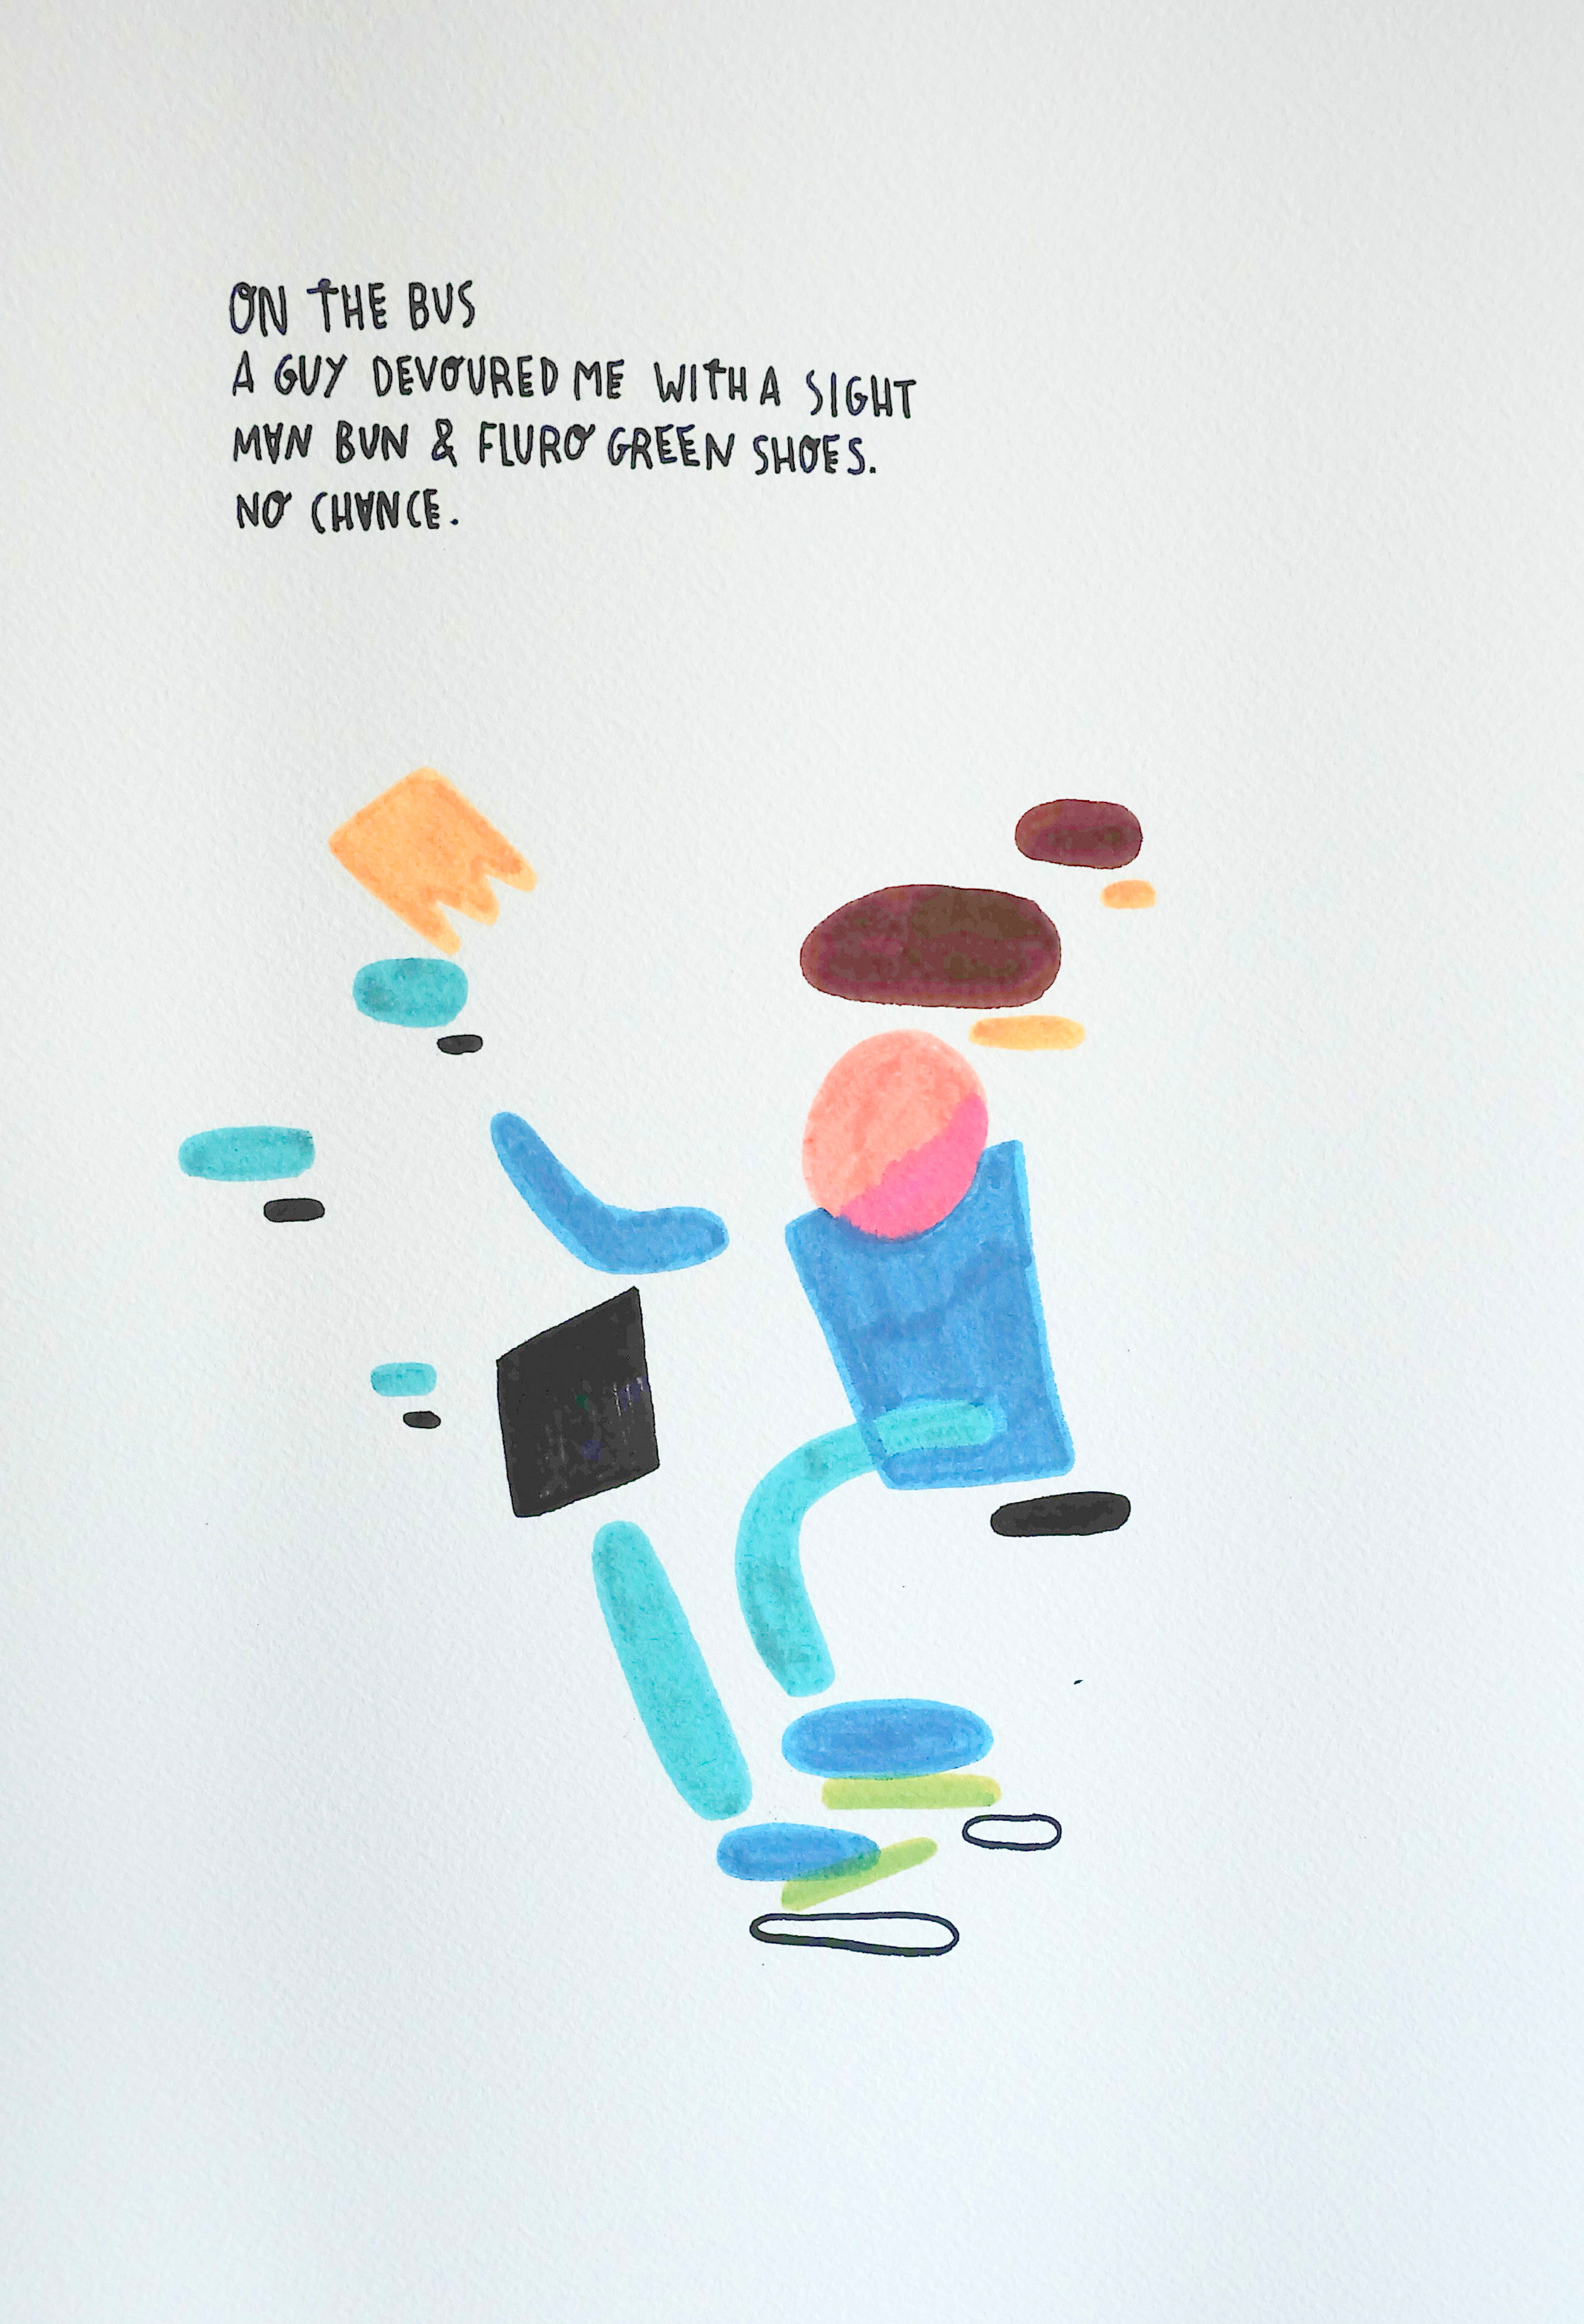 ON THE BUS
A GUY DEVOURED ME WITH A SIGHT
MAN BUN & FLURO GREEN SHOES.
NO CHANCE.